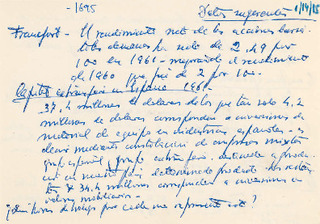 -1695
Datos sugerentes 1/14/15
Francfort - El rendimiento neto de las acciones
alemanas ha sido de 2,49 por
100 en 1961 - mejorando el rendimiento
de 1960 que fue de 2 por 100.
Capital extranjero en España 1961 -
37,4 millones de dólares de los que tan solo 4,2
millones de dólares corresponden a inversiones de
material de equipo en industrias españolas - es
decir mediante constitución de empresas mixtas
grupo español y grupo extranjero, destinada a produ-
cir en nuestro país determinado producto. Los restan-
tes 34,4 millones corresponden a inversiones en
valores mobiliarios -
¿Qué horas de trabajo por cada uno representa esto?